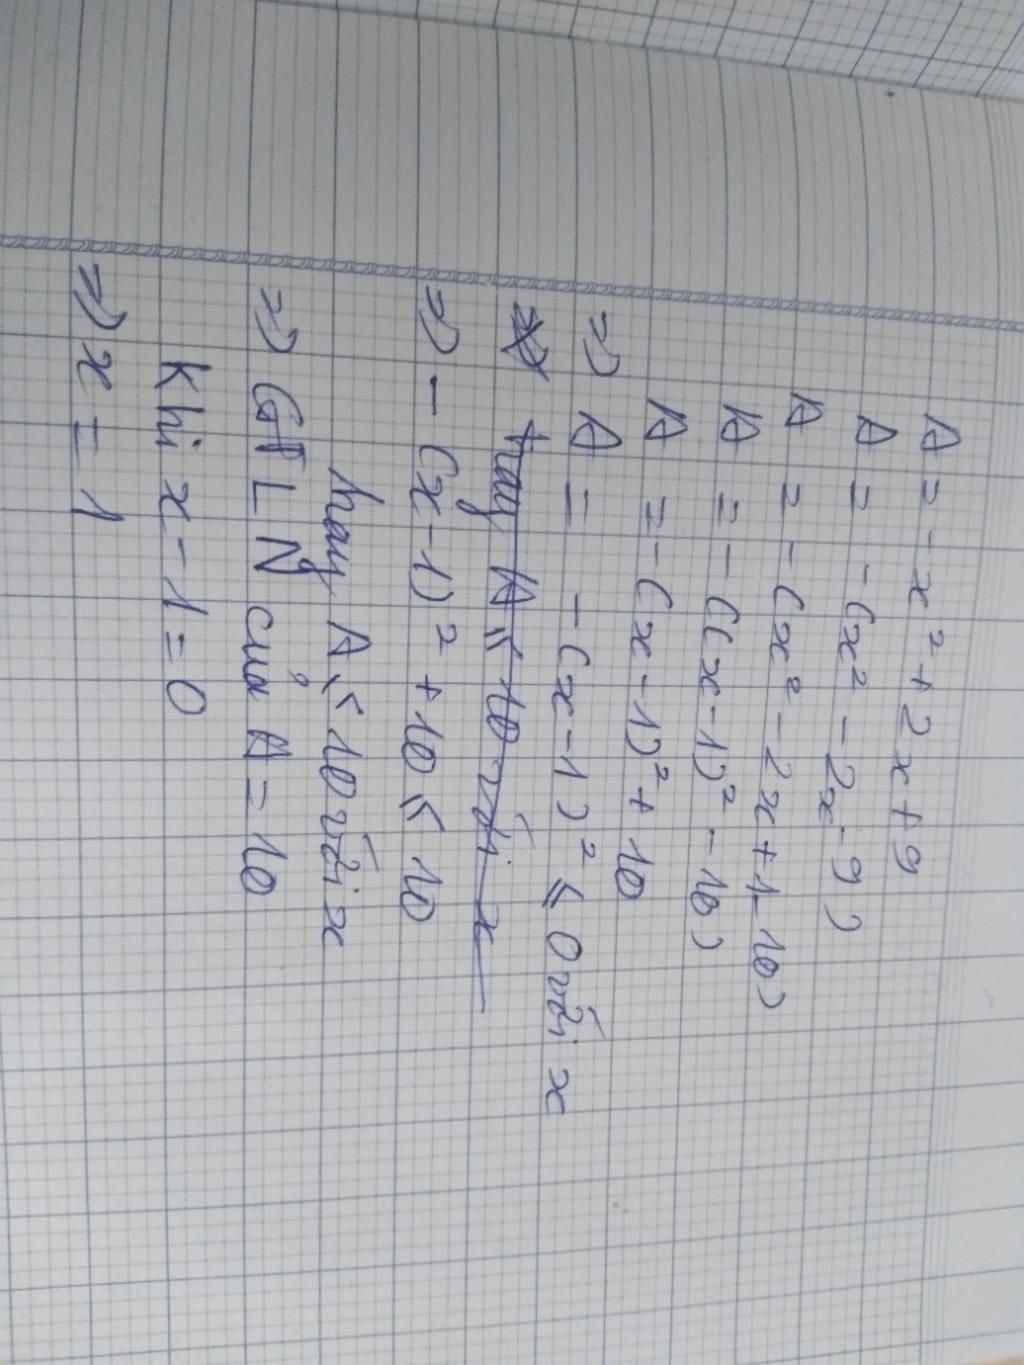 A = - x² + 2x + 9
A = - (x² - 2x - 9)
A = - (x² - 2x + 1 - 10)
A = - ((x - 1)² - 10)
A = - (x - 1)² + 10
=> A = - (x - 1)² ≤ 0 với x
hay A ≤ 10 với x
=> - (x - 1)² + 10 ≤ 10
hay A ≤ 10 với x
=> GTLN của A = 10
Khi x - 1 = 0
=> x = 1